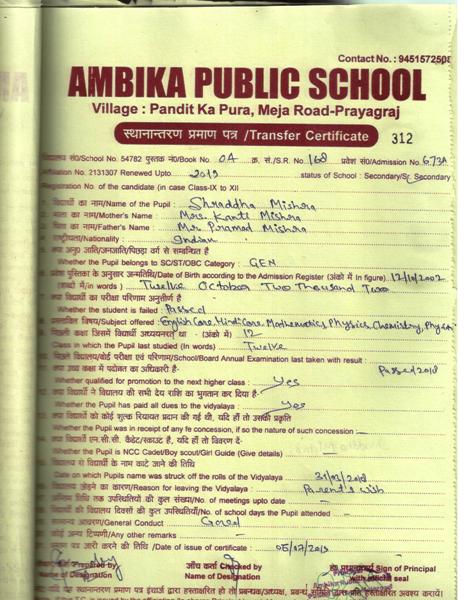 Contact No. : 9451572508
AMBIKA PUBLIC SCHOOL
Village : Pandit Ka Pura, Meja Road-Prayagraj
स्थानान्तरण प्रमाण पत्र /Transfer Certificate
312
विद्यालय सं०/School No. 54782 पुस्तक नं०/Book No. OA क्र. सं./S.R. No. 168 प्रवेश सं०/Admission No. 673A
No. 2131307 Renewed Upto 2019 status of School : Secondary/Sr. Secondary
Registration No. of the candidate (in case Class-IX to XII
विद्यार्थी का नाम/Name of the Pupil : Shraddha Mishra
माता का नाम/Mother's Name : Mrs. Kanti Mishra
पिता का नाम/Father's Name : Mr Pramod Mishra
राष्ट्रीयता/Nationality : Indian
क्या अनु० जाति/जनजाति/पिछड़ा वर्ग से सम्बन्धित है
Whether the Pupil belongs to SC/ST/OBC Category : GEN
प्रवेश पुस्तिका के अनुसार जन्मतिथि/Date of Birth according to the Admission Register (अंको में In figure) 12/10/2002
(शब्दों में/in words) Twelve October Two Thousand Two
क्या विद्यार्थी का परीक्षा परिणाम अनुत्तीर्ण है
Whether the student is failed Passed
प्रस्तावित विषय/Subject offered : English Core, Hindi Core, Mathematics, Physics, Chemistry,
पिछली कक्षा जिसमें विद्यार्थी अध्ययनरत था - (अंको में) 12
Class in which the Pupil last studied (In words) Twelve
पिछले विद्यालय/बोर्ड परीक्षा एवं परिणाम/School/Board Annual Examination last taken with result :
क्या उच्च कक्षा में पदोन्नत का अधिकारी है- Passed 2018
Whether qualified for promotion to the next higher class : Yes
क्या विद्यार्थी ने विद्यालय की सभी देय राशि का भुगतान कर दिया है-
Whether the Pupil has paid all dues to the vidyalaya : Yes
क्या विद्यार्थी को कोई शुल्क रियायत प्रदान की गई थी, यदि हाँ तो उसकी प्रकृति
Whether the Pupil was in receipt of any fe concession, if so the nature of such concession
क्या विद्यार्थी एन.सी.सी. कैडेट/स्काउट है, यदि हाँ तो विवरण दें-
Whether the Pupil is NCC Cadet/Boy scout/Girl Guide (Give details)
विद्यालय से विद्यार्थी के नाम काटे जाने की तिथि
Date on which Pupils name was struck off the rolls of the Vidyalaya
विद्यालय छोड़ने का कारण/Reason for leaving the Vidyalaya : Parent's
अन्तिम तिथि तक उपस्थितियों की कुल संख्या/No. of meetings upto date
विद्यार्थी की विद्यालय दिवसों की कुल उपस्थितियाँ/No. of school days the Pupil attended
सामान्य आचरण/General Conduct Good
कोई अन्य टिप्पणी/Any other remarks
पत्र जारी करने की तिथि /Date of issue of certificate :
Prepared by जाँच कर्ता Checked by Sign of Principal
of Designation Name of Designation with official seal